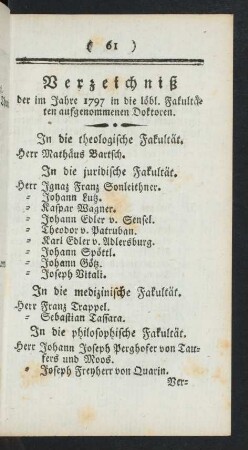 ( 61 )
Verzeichniß
der im Jahre 1797 in die löbl. Fakultä-
ten aufgenommenen Doktoren.
In die theologische Fakultät.
Herr Mathäus Bartsch.
In die juridische Fakultät.
Herr Ignaz Franz Sonleithner.
= Johann Lutz.
= Kaspar Wagner.
= Johann Edler v. Sensel.
= Theodor v. Patruban.
= Karl Edler v. Adlersburg.
= Johann Spöttl.
= Johann Götz.
= Joseph Vitali.
In die medizinische Fakultät.
Herr Franz Trappel.
= Sebastian Taffara.
In die philosophische Fakultät.
Herr Johann Joseph Perghofer von Tau-
fers und Moos.
= Joseph Freyherr von Quarin.
Ver-